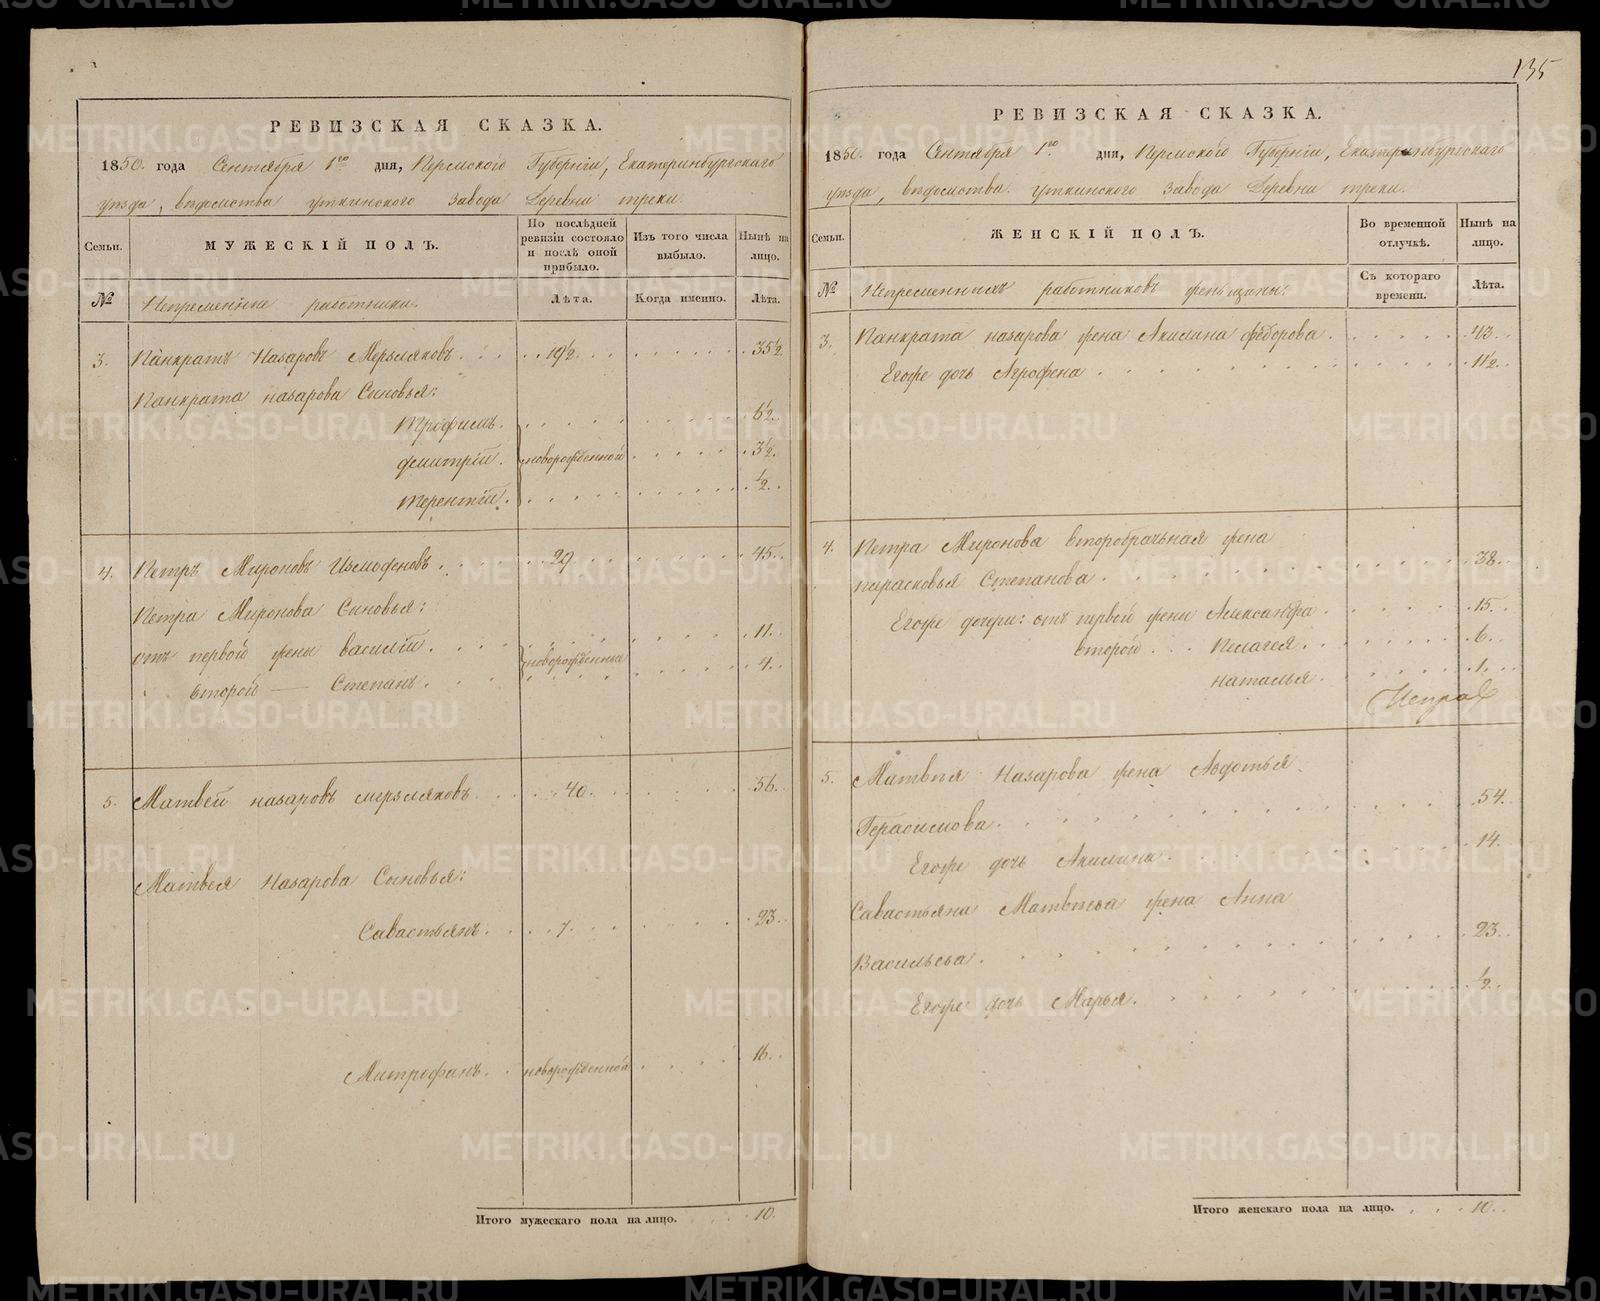 135
РЕВИЗСКАЯ СКАЗКА.
1850. года Сентября 1го дня, Пермской Губернiи, Екатеринбургскаго
уѣзда, вѣдомства уткинскаго завода Деревни треки.
Семьи.
МУЖЕСКIЙ ПОЛЪ.
По послѣдней ревизiи состояло и послѣ оной прибыло.
Изъ того числа выбыло.
Нынѣ на лицо.
№
Непременные работники.
Лѣта.
Когда именно.
Лѣта.
3. Панкратъ Назаровъ Мерзляковъ. 19½. 35½.
Панкрата назарова Сыновья:
Трофимъ. 6½.
дмитрiй. новорожденной 3½.
Терентiй. ½.
4. Петръ Мироновъ Изможеновъ. 29. 45.
Петра Миронова Сыновья:
отъ первой жены василiй. 11.
второй — Степанъ. новорожденные 4.
5. Матвей назаровъ мерзляковъ. 40. 56.
Матвея Назарова Сыновья:
Савастьянъ. 7. 23.
Митрофанъ. новорожденной 16.
Итого мужескаго пола на лицо. 10.
РЕВИЗСКАЯ СКАЗКА.
1850. года Сентября 1го. дня, Пермской Губернiи, Екатеринбургскаго
уѣзда, вѣдомства уткинскаго завода Деревни треки.
Семьи.
ЖЕНСКIЙ ПОЛЪ.
Во временной отлучкѣ.
Нынѣ на лицо.
№
Непременныхъ работниковъ женьщины:
Съ котораго времени.
Лѣта.
3. Панкрата назарова жена Акилина федорова. 43.
Егоже дочь Агрофена 11½.
4. Петра Миронова второбрачьная жена
парасковья Степанова. 38.
Егоже дочери: отъ первой жены Александра 15.
второй Пелагея. 6.
наталья. 1.
Исправ
5. Матвѣя Назарова жена Авдотья
Герасимова. 54.
Егоже дочь Акилина. 14.
Савастьяна Матвѣева жена Анна
Васильева. 23.
Егоже дочь Марья. ½.
Итого женскаго пола на лицо. 10.
METRIKI.GASO-URAL.RU